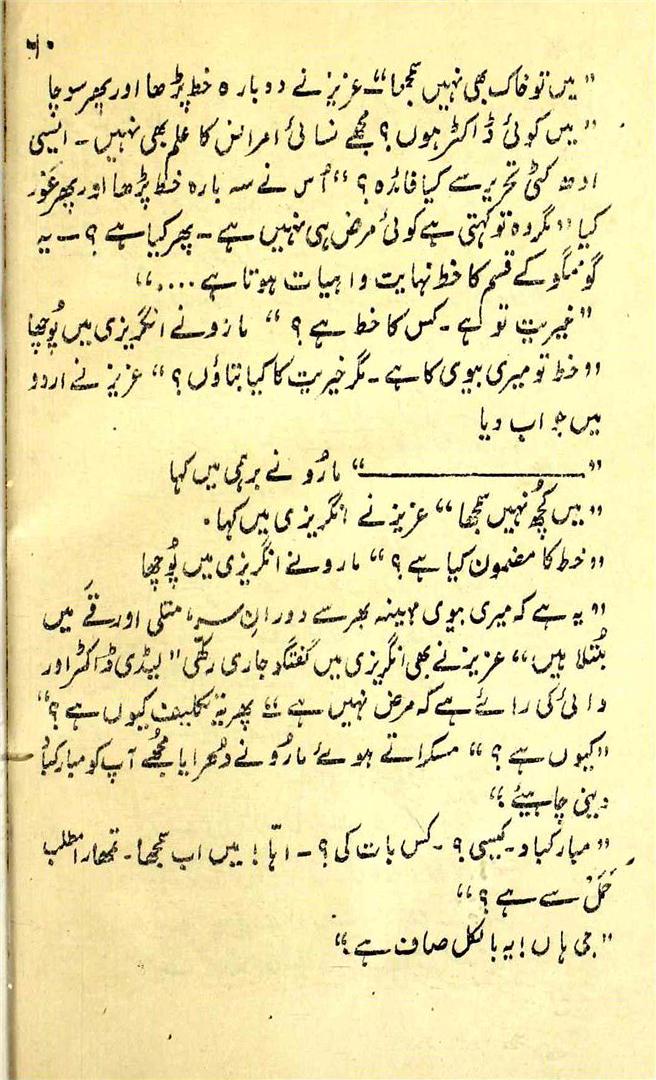 "میں تو خاک بھی نہیں سمجھا"۔ عزیز نے دوبارہ خط پڑھا اور پھر سوچا
"میں کوئی ڈاکٹر ہوں؟ مجھے نسائی امراض کا علم بھی نہیں۔ ایسی
ادھ کٹی تحریر سے کیا فائدہ؟" اُس نے سہ بارہ خط پڑھا اور پھر غور
کیا "مگر وہ تو کہتی ہے کوئی مرض ہی نہیں ہے۔ پھر کیا ہے؟۔ یہ
گو مگو کے قسم کا خط نہایت واہیات ہوتا ہے ....،"
"خیریت تو ہے۔ کس کا خط ہے؟" مارو نے انگریزی میں پُوچھا
"خط تو میری بیوی کا ہے۔ مگر خیریت کا کیا بتاؤں؟" عزیز نے اردو
میں جواب دیا
"ــــــــــــــــــــ" مارُو نے برہمی میں کہا
"میں کچُھ نہیں سمجھا" عزیز نے انگریزی میں کہا۔
"خط کا مضمون کیا ہے؟" مارو نے انگریزی میں پُوچھا
"یہ ہے کہ میری بیوی مہینہ بھر سے دورانِ سر، متلی اور قے میں
مُبتلا ہیں" عزیز نے بھی انگریزی میں گفتگو جاری رکھّی "لیڈی ڈاکٹر اور
دائی کی رائے ہے کہ مرض نہیں ہے" پھر یہ تکلیف کیوں ہے؟"
"کیوں ہے؟" مسکراتے ہوئے مارُو نے دُھرایا مُجھے آپ کو مبارکباد
دینی چاہیئے"
"مبارکباد۔ کیسی؟۔ کس بات کی؟۔ اہّا! میں اب سمجھا۔ تمھارا مطلب
حَمل سے ہے؟"
"جی ہاں! یہ بالکل صاف ہے"